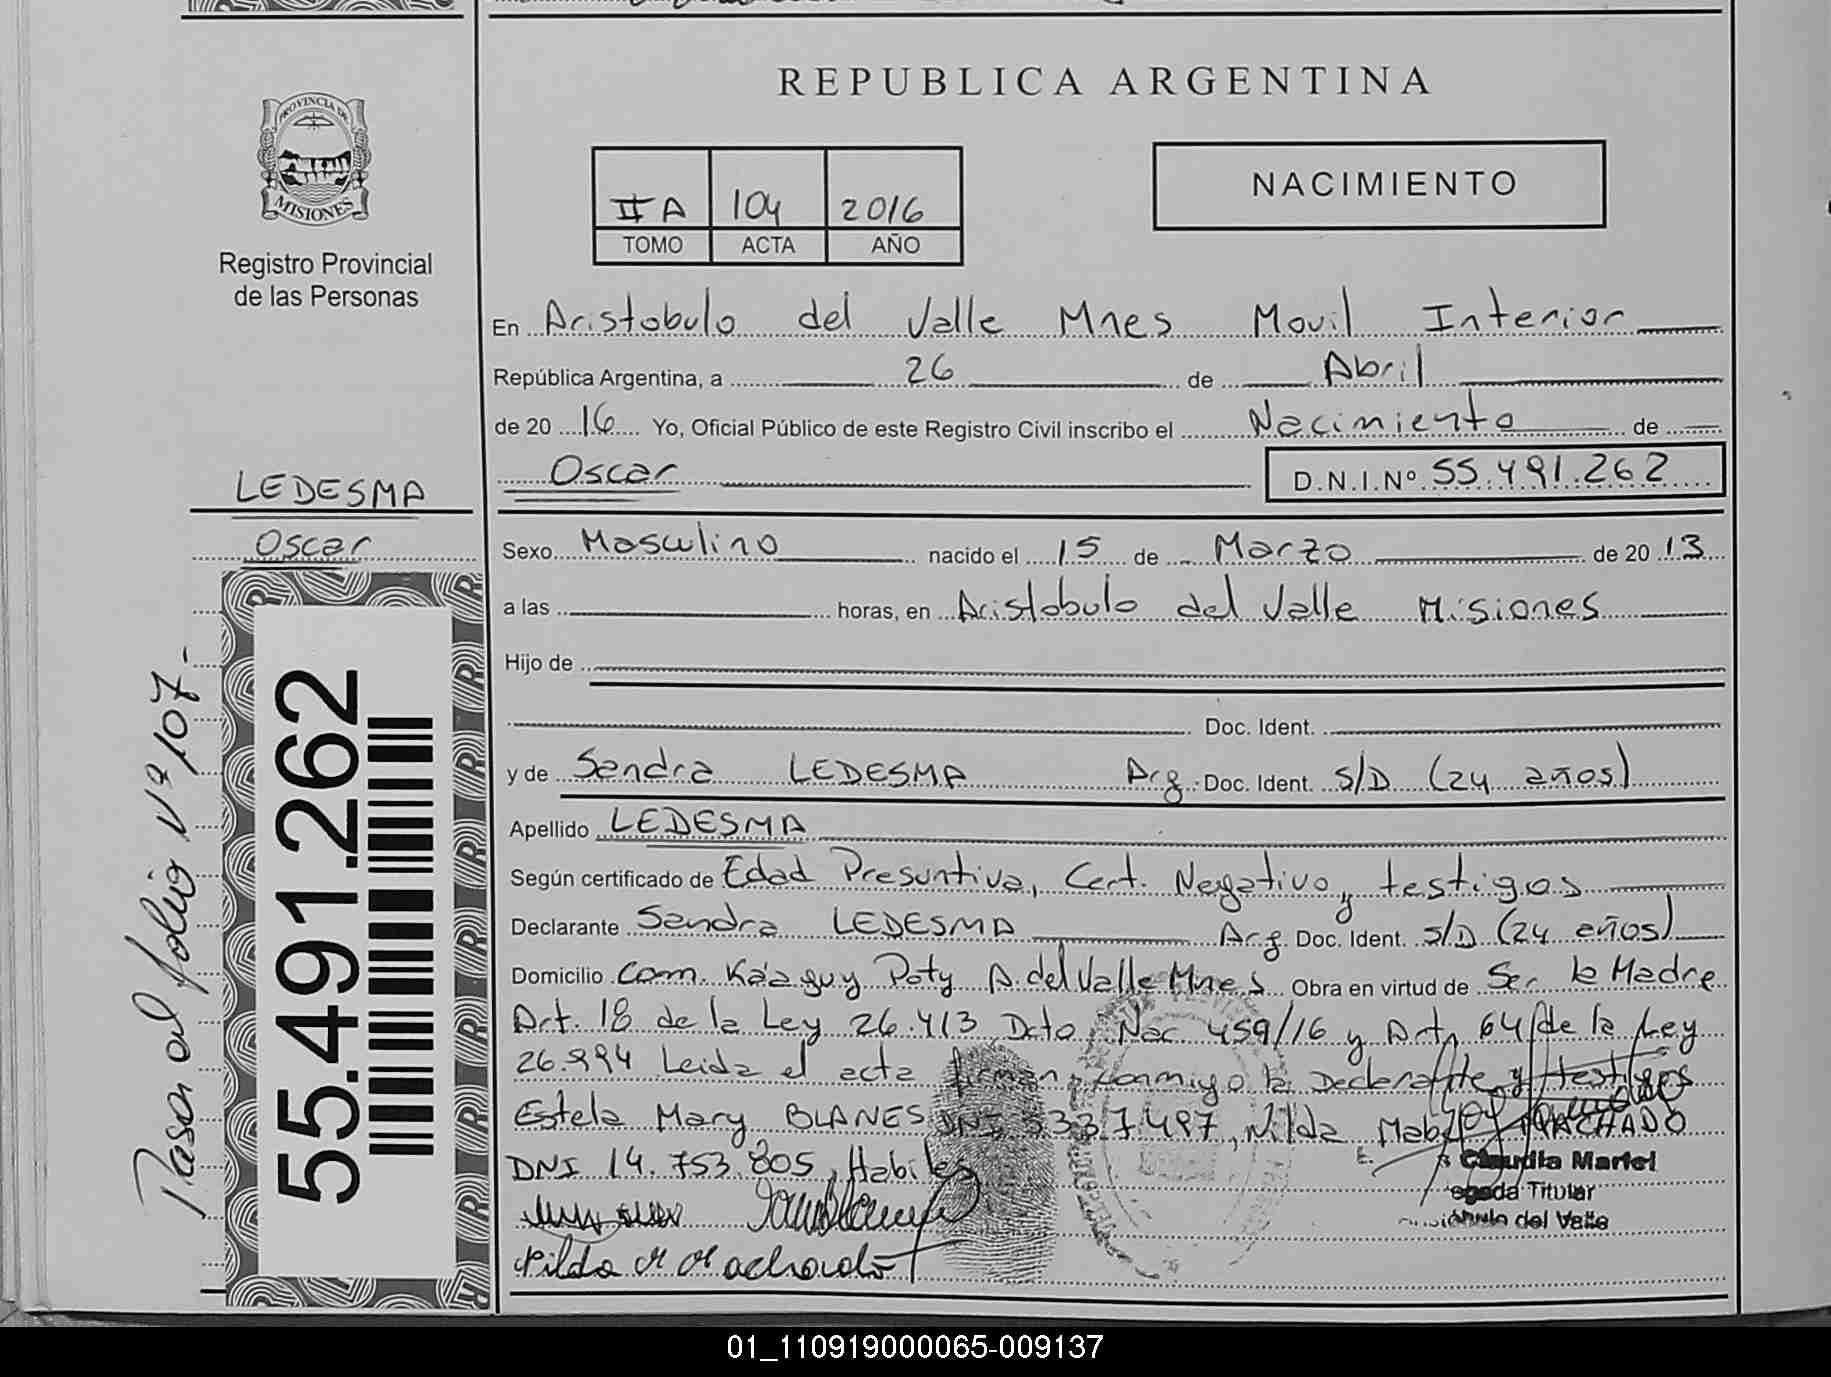 REPUBLICA ARGENTINA
PROVINCIA DE
MISIONES
Registro Provincial
de las Personas
IIA 104 2016
TOMO ACTA AÑO
NACIMIENTO
En Aristobulo del Valle Mnes Movil Interior
República Argentina, a 26 de Abril
de 20 16 Yo, Oficial Público de este Registro Civil inscribo el Nacimiento de
Oscar D.N.I.Nº 55.491.262
LEDESMA
Oscar
55.491.262
Pasa al folio Nº 107-
Sexo Masculino nacido el 15 de Marzo de 20 13
a las horas, en Aristobulo del Valle Misiones
Hijo de
Doc. Ident.
y de Sandra LEDESMA Arg. Doc. Ident. S/D (24 años)
Apellido LEDESMA
Según certificado de Edad Presuntiva, Cert. Negativo y testigos
Declarante Sandra LEDESMA Arg. Doc. Ident. S/D (24 años)
Domicilio Com. Kaaguy Poty A. del Valle Mnes Obra en virtud de Ser la Madre
Art. 18 de la Ley 26.413 Dcto Nac 459/16 y Art 64 de la Ley
26.994 Leida el acta firman conmigo la Declarante y testigos
Estela Mary BLANES DNI 337.497, Nilda MACHADO
DNI 14.753.805, Habiles
Nilda M Machado
Claudia Mariel
Titular
del Valle
01_110919000065-009137